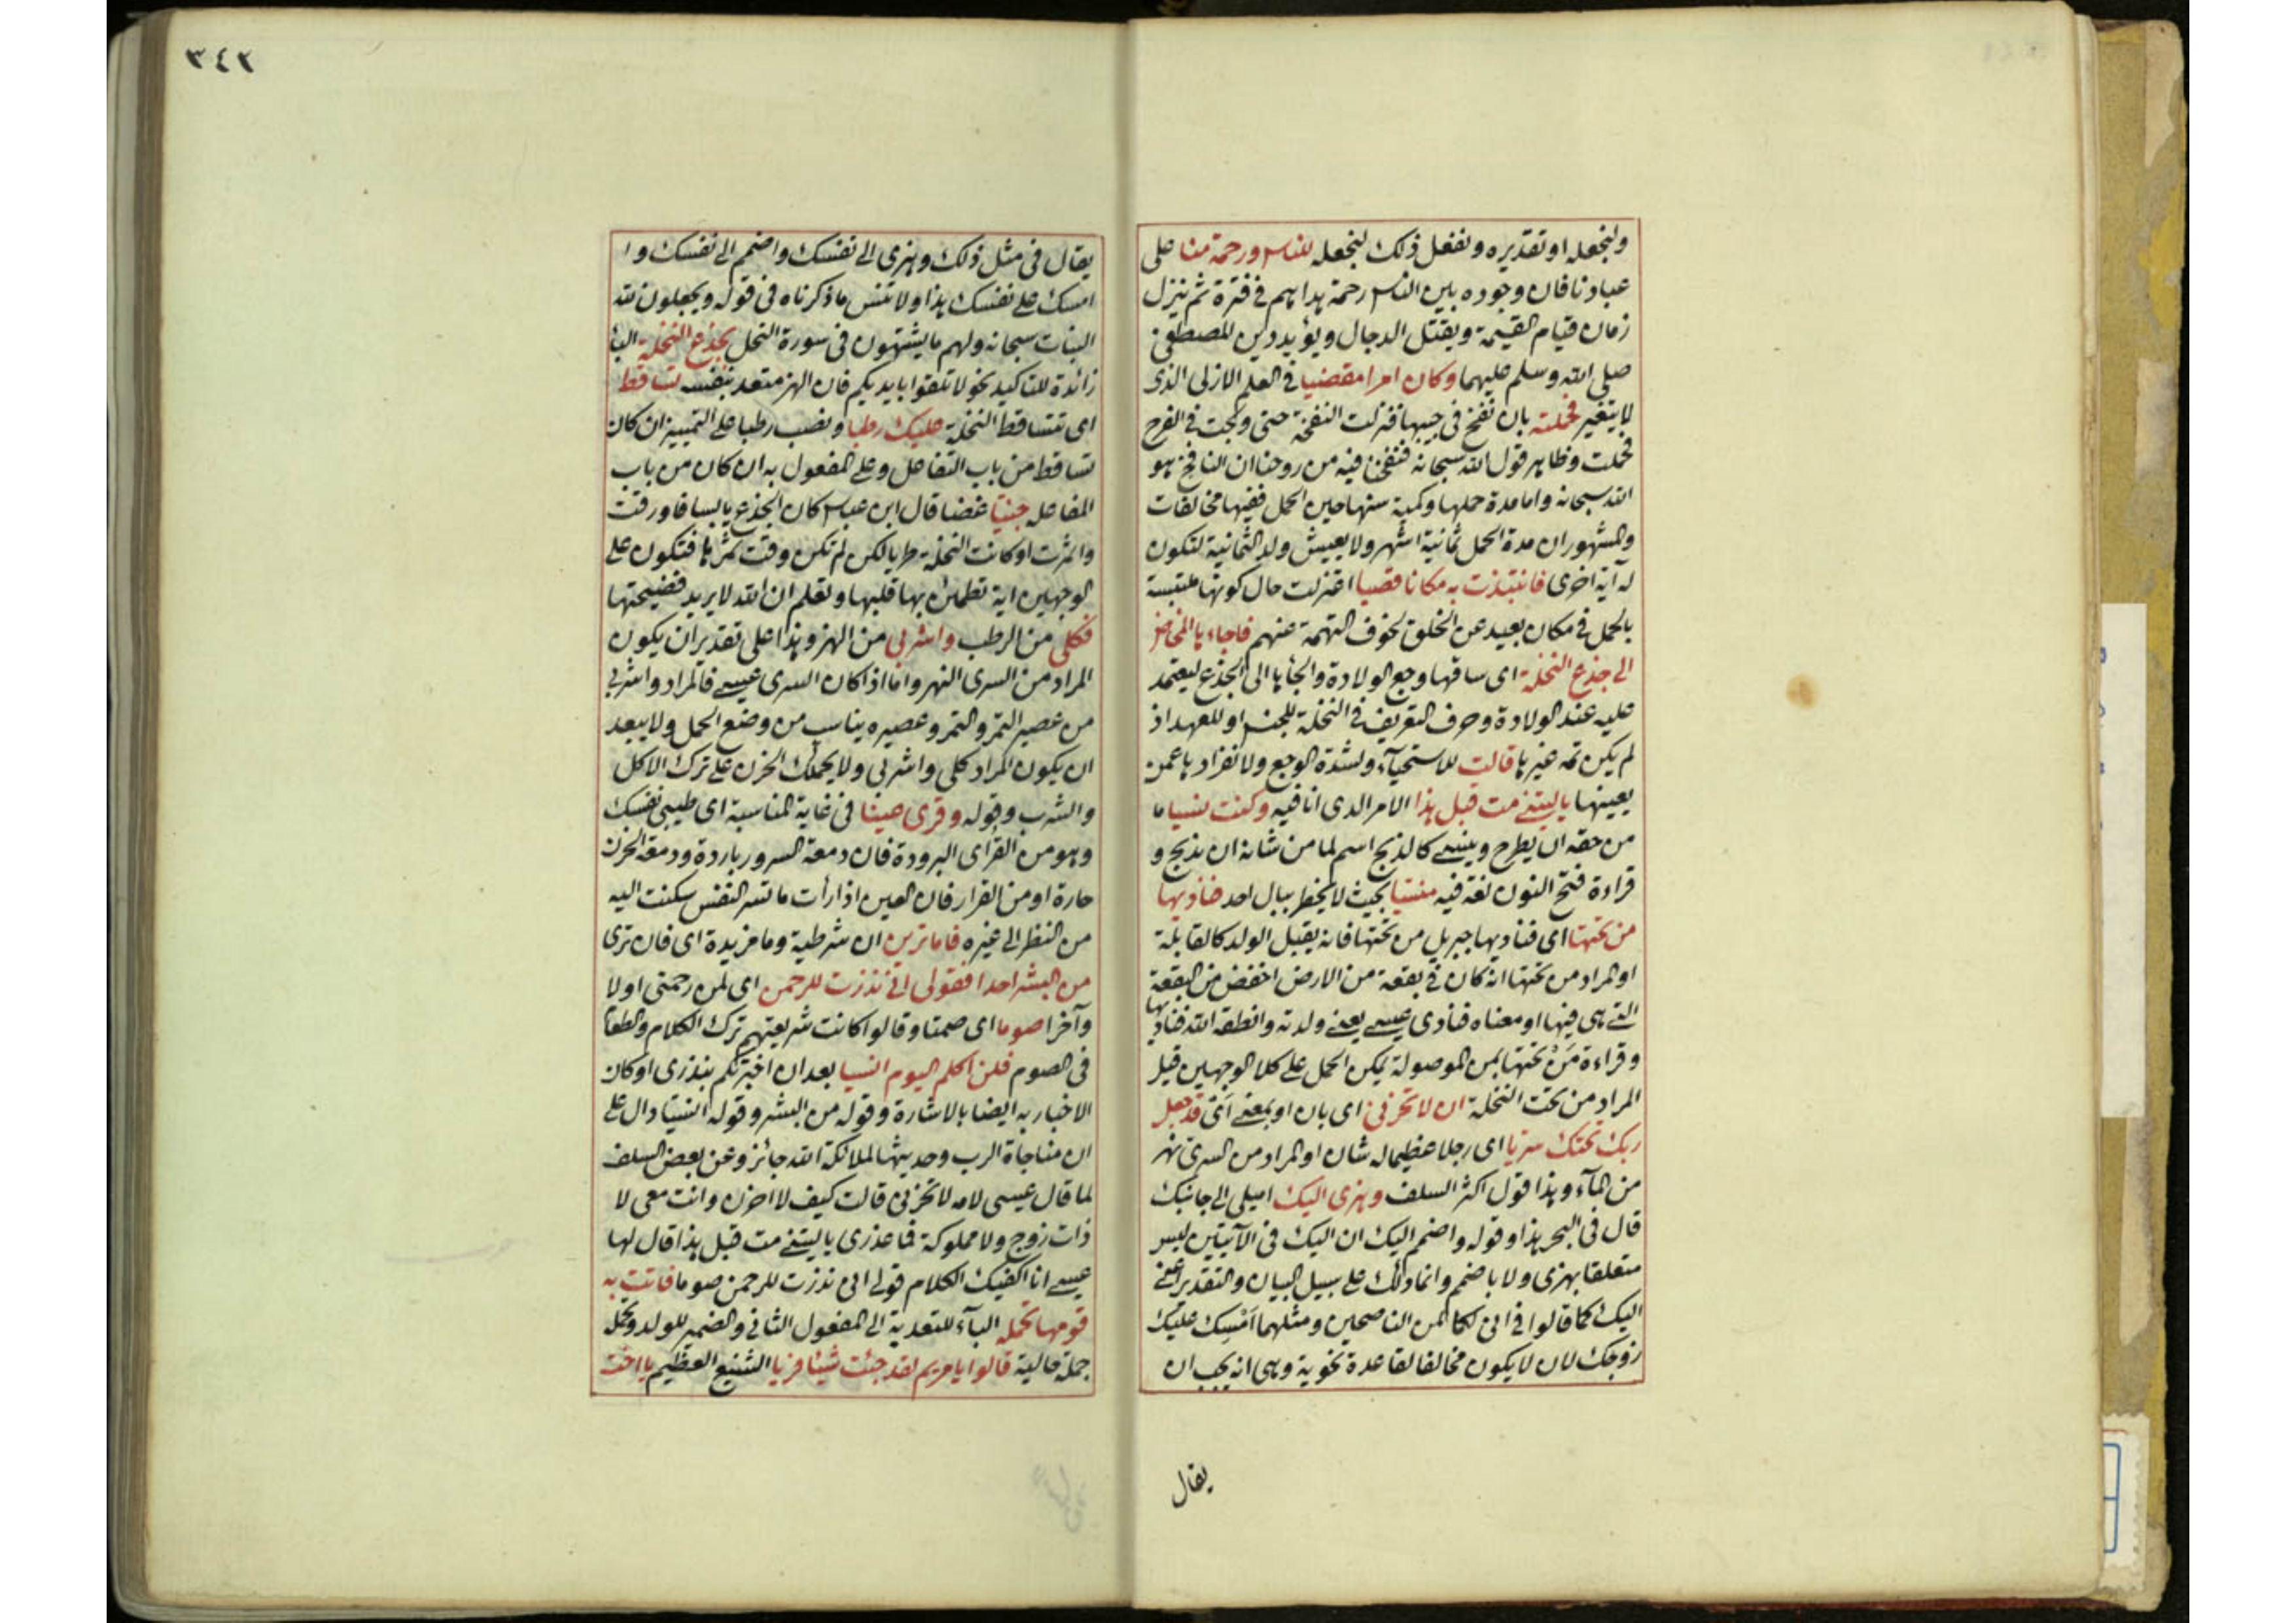 ولنجعله او تقديره ونفعل ذلك لنجعله للناس ورحمة منا على
عبادنا فان وجوده بين الناس رحمة يداٮهم في فترة ثم ينزل
زمان قيام القيمة ويقتل الدجال ويؤيد دين المصطفى
صلى الله وسلم عليهما وكان امرا مقضيا في العلم الازلى الذى
لا يتغير فحملته بان نفخ فى جيبها فنزلت النفخة حتى ولجت فى الفرج
فحملت وظاهر قول الله سبحانه فنفخنا فيه من روحنا ان النافخ هو
الله سبحانه واما مدة حملها وكمية سنها حين الحمل ففيها مخالفات
والمشهور ان مدة الحمل ثمانية اشهر ولا يعيش ولد الثمانية لتكون
له آية اخرى فانتبذت به مكانا قصيا اعتزلت حال كونها ملتبسة
بالحمل فى مكان بعيد عن الخلق لخوف التهمة عنهم فاجاءها المخاض
الى جذع النخلة اى ساقها وجع الولادة والجأها الى الجذع ليعتمد
عليه عند الولادة وحرف التعريف فى النخلة للجنس او للعهد اذ
لم يكن ثمه غيرها قالت للاستحيآء ولشدة الوجع ولانفرادها عمن
يعينها ياليتنى مت قبل هذا الامر الذى انا فيه وكنت نسيا ما
من حقه ان يطرح وينسى كالذبح اسم لما من شانه ان يذبح و
قراءة فتح النون لغة فيه منسيا بحيث لا يخطر ببال احد فناديها
من تحتها اى فناديها جبريل من تحتها فانه يقبل الولد كالقابلة
او المراد من تحتها انه كان فى بقعة من الارض اخفض من البقعة
التى هى فيها او معناه فنادى عيسى يعنى ولدته وانطقه الله فناديها
وقراءة مَنْ تحتها بمن الموصولة يمكن الحمل على كلا الوجهين قيل
المراد من تحت النخلة ان لا تحزنى اى بان او بمعنى اى قد جعل
ربك تحتك سريا اى رجلا عظيما له شان او المراد من السرى نهر
من المآء وهذا قول اكثر السلف وهزى اليك اميلى الى جانبك
قال فى البحر هذا وقوله واضمم اليك ان اليك فى الآيتين ليس
متعلقا بهزى ولا باضمم وانما ذلك على سبيل البيان والتقدير اعنى
اليك كما قالوا فى انى لكما لمن الناصحين ومثلهما اَمْسِك عليك
زوجك لان لا يكون مخالفا لقاعدة نحوية وهى انه يجب ان
يقال
٣٤٢
يقال فى مثل ذلك وهزى الى نفسك واضمم الى نفسك و ا
امسك على نفسك هذا ولا تنس ما ذكرناه فى قوله ويجعلون لله
البنات سبحانه ولهم ما يشتهون فى سورة النحل بجذع النخلة البآ
زائدة للتاكيد نحو لا تلقوا بايديكم فان الهز متعد بنفسه تساقط
اى تتساقط النخلة عليك رطبا ونصب رطبا على التمييز ان كان
تساقط من باب التفاعل وعلى المفعول به ان كان من باب
المفاعله جنيّا غضا قال ابن عباس كان الجذع يابسا فاورقت
واثمرت او كانت النخلة طريا لكن لم تكن وقت ثمرها فتكون على
الوجهين اية تطمئن بها قلبها وتعلم ان الله لا يريد فضيحتها
فكلى من الرطب واشربى من الهز وهذا على تقدير ان يكون
المراد من السرى النهر واما اذا كان السرى عيسى فالمراد واشربى
من عصير التمر والتمر وعصيره يناسب من وضع الحمل ولا يبعد
ان يكون المراد كلى واشربى ولا يحملك الحزن على ترك الاكل
والشرب وقوله وقرى عينا فى غاية المناسبة اى طيبى نفسك
وهو من القر اى البرودة فان دمعة السرور باردة ودمعة الحزن
حارة او من القرار فان العين اذا رأت ما تسر النفس سكنت اليه
من النظر الى غيره فاما ترين ان شرطية وما مزيدة اى فان ترى
من البشر احدا فقولى انى نذرت للرحمن اى لمن رحمنى اولا
وآخرا صوما اى صمتا وقالوا كانت شريعتهم ترك الكلام والطعام
فى الصوم فلن اكلم اليوم انسيا بعد ان اخبرتكم بنذرى او كان
الاخبار به ايضا بالاشارة وقوله من البشر وقوله انسيا دال على
ان مناجاة الرب وحديثها لملائكة الله جائز وعن بعض السلف
لما قال عيسى لامه لا تحزنى قالت كيف لا احزن وانت معى لا
ذات زوج ولا مملوكة فما عذرى ياليتنى مت قبل هذا قال لها
عيسى انا اكفيك الكلام قولى انى نذرت للرحمن صوما فاتت به
قومها تحمله البآء للتعدية الى المفعول الثانى والضمير للولد وتحمله
جملة حالية قالوا يا مريم لقد جئت شيئا فريا الشنيع العظيم يا اخت